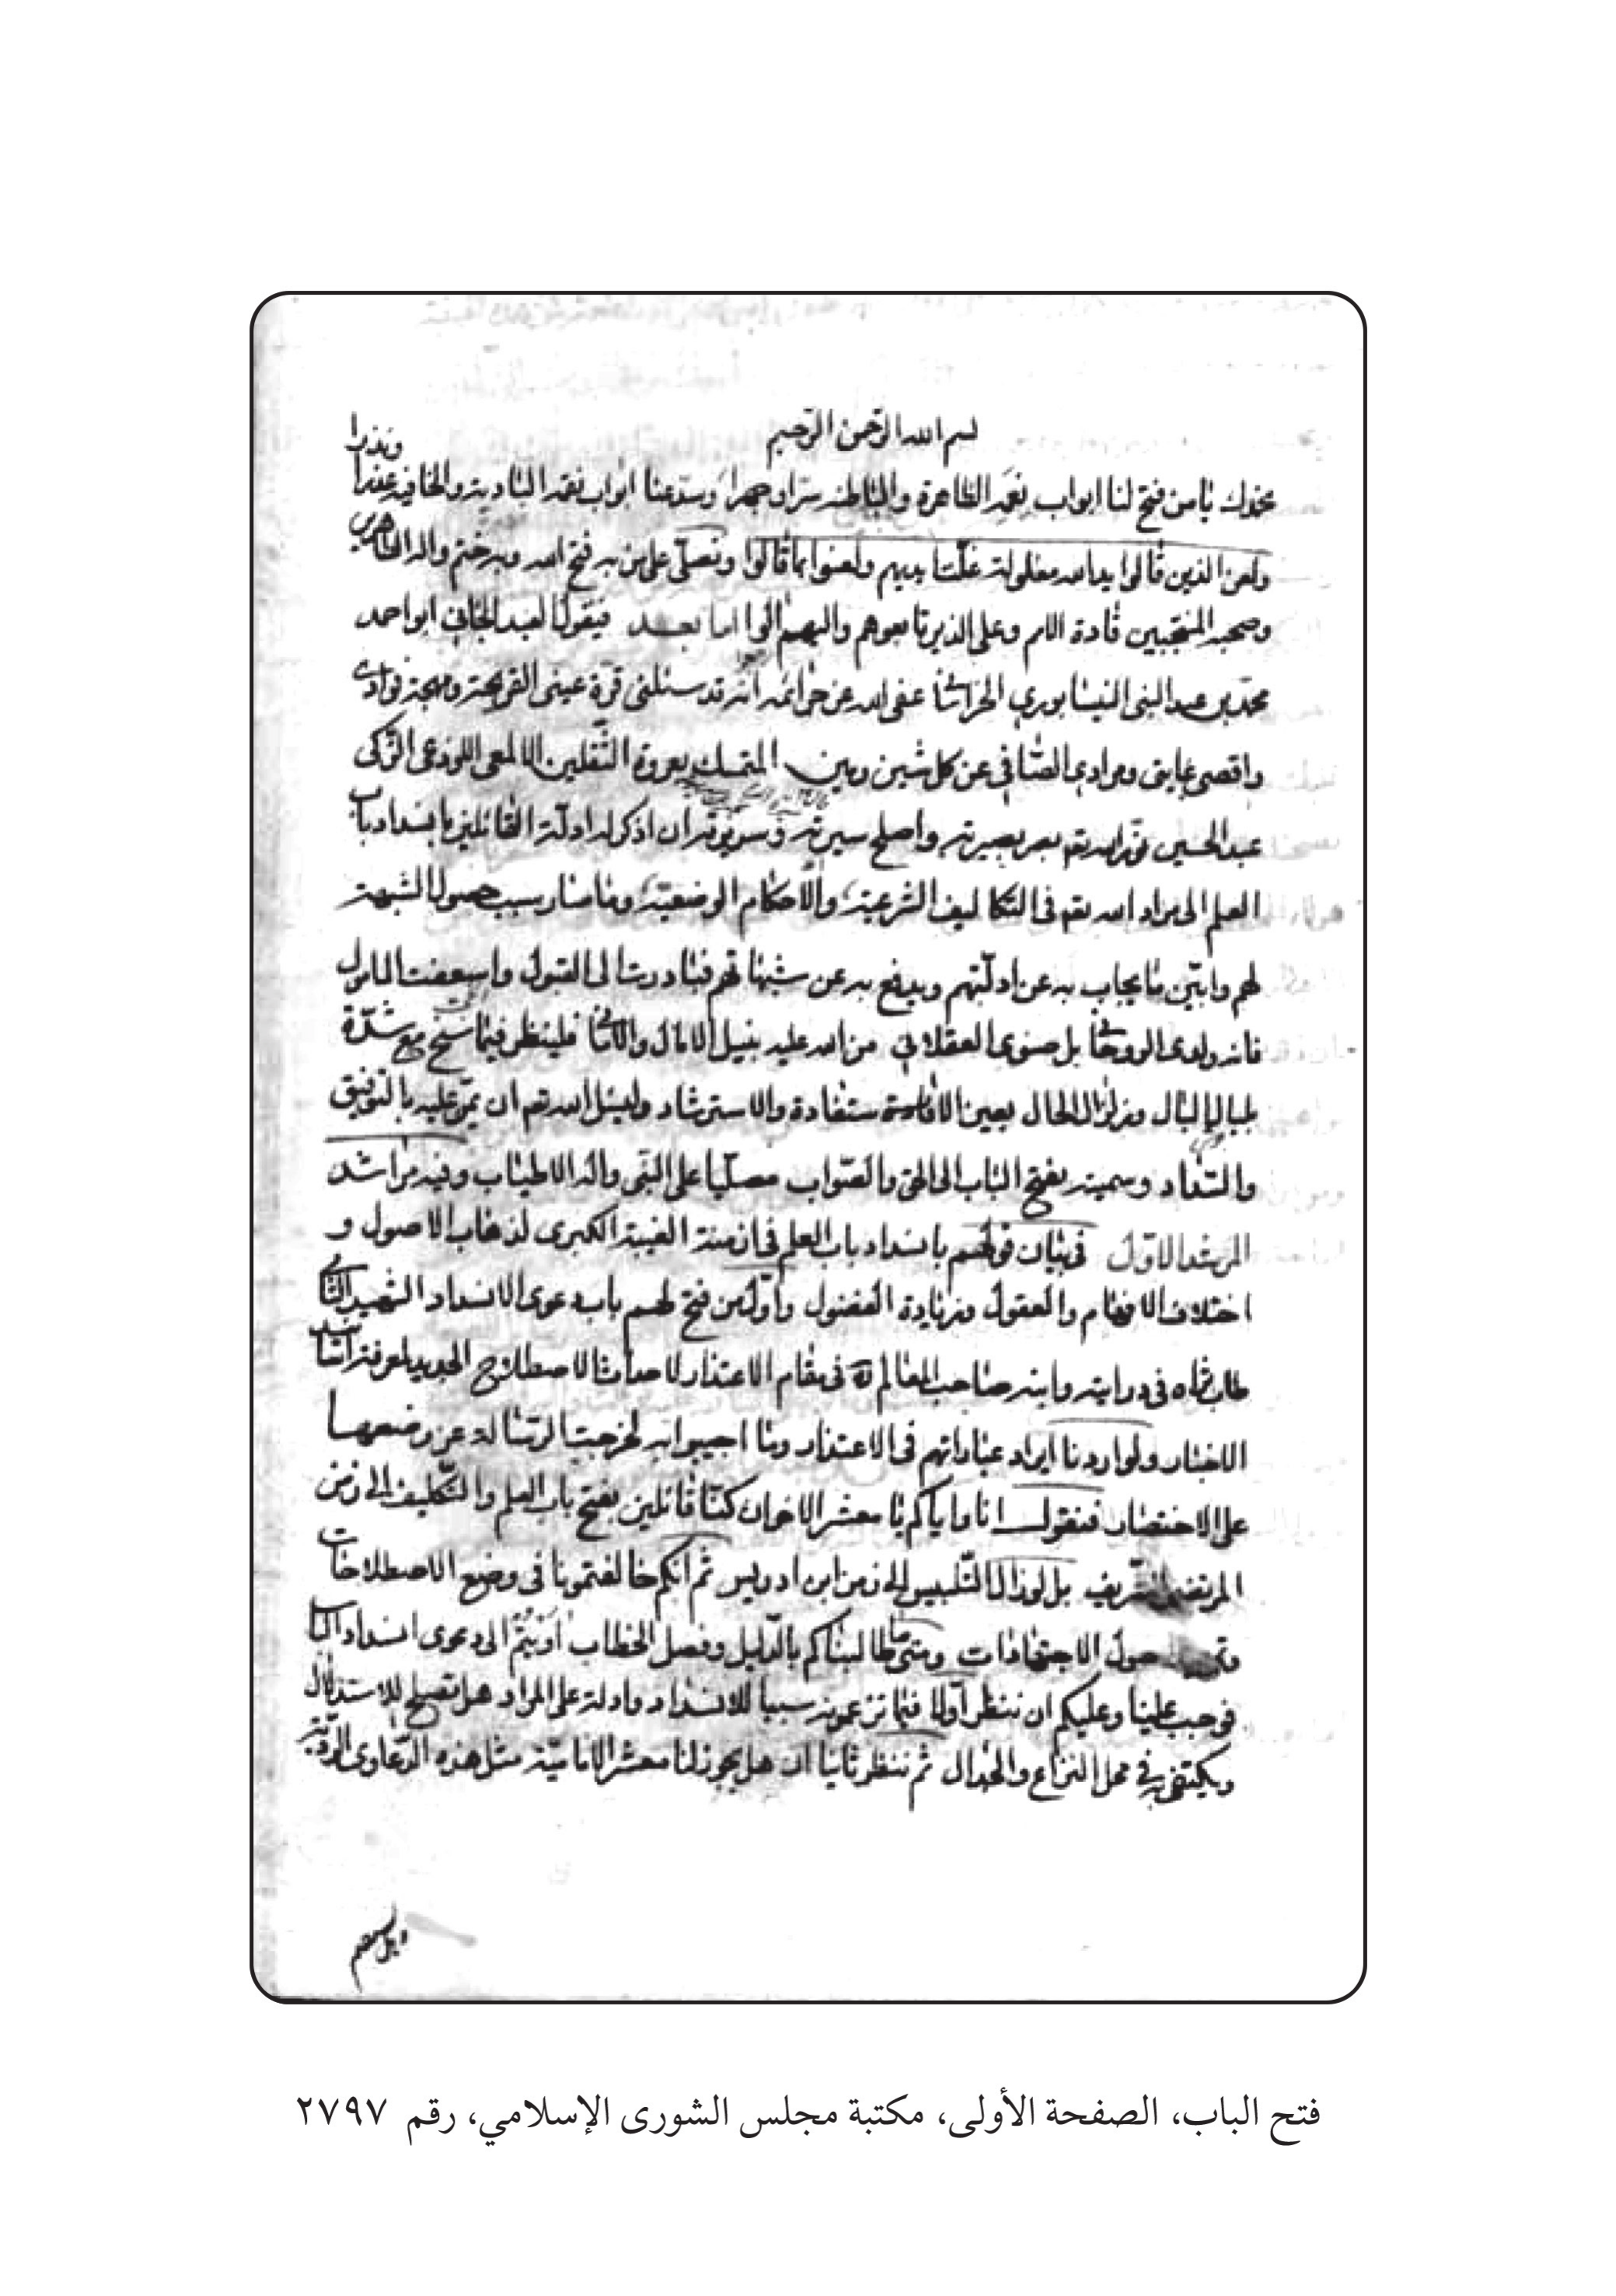 بسم الله الرحمن الرحيم
نحمدك يا من فتح لنا ابواب نعمه الظاهرة والباطنه سرّا وجهرا وسدّ عنا ابواب نقمه البادية والخافية عذرا
ونذرا
ولعن الذين قالوا يد الله مغلولة غلّت ايديهم ولعنوا بما قالوا ونصلّي على من به فتح الله وبه ختم واله الطاهرين
وصحبه المنتجبين قادة الامم وعلى الذين تابعوهم واليهم الوا اما بعد فيقول العبد الجاني ابو احمد
محمّد بن عبد النبي النيسابوري الخراساني عفى الله عن جرائمه انه قد سئلني قرّة عيني القريحة ومهجة فوادي
واقصى غايتي ومرادي الصّافي عن كل شين ومين المتمسك بعروة الثّقلين الالمعي اللوذعي الزكي
عبد الحسين نوّر الله تعه بصر بصيرته واصلح سيرته وسريرته ان اذكر له ادلّة القائلين بانسداد باب
العلم الى مراد الله تعه في التكاليف الشرعية والاحكام الوضعيّة وما صار سبب حصول الشبهة
لهم وابيّن ما يجاب به عن ادلّتهم ويدفع به عن شبهاتهم فبادرت الى القبول واسعفت المامول
فانه ولدي الروحاني بل صنوي العقلاني من الله عليه بنيل الامال والاماني فلينظر فيما سنح مع شدّة
بلبال البال وزلزال الحال بعين الافادة ستفادة والاسترشاد وليسئل الله تعه ان يمّن عليه بالتوفيق
والسّداد وسميته بفتح الباب الى الحق والصّواب مصلّيا على النبي واله الاطياب وفيه مراشد
المرشد الاوّل في بيان قولهم بانسداد باب العلم في ازمنة الغيبة الكبرى لذهاب الاصول و
اختلاف الافهام والعقول وزيادة الفضول واوّل من فتح لهم باب دعوى الانسداد الشهيد الثاني
طاب ثراه في درايته وابنه صاحب المعالم ره في مقام الاعتذار لاحداث الاصطلاح الجديد لمعرفة اسانيد
الاخبار ولو اردنا ايراد عباراتهم في الاعتذار وما اجيبوا به لخرجت الرسالة عن وضعها
على الاختصار فنقول انا واياكم يا معشر الاخوان كنّا قائلين بفتح باب العلم والتكليف الى زمن
المرتضى الشريف بل لو ذال التّلبيس الى زمن ابن ادريس ثم انكم خالفتمونا في وضع الاصطلاحات
حول الاجتهادات ومتى ما طالبناكم بالدّليل وفصل الخطاب اويتم الى دعوى انسداد الباب
فوجب علينا وعليكم ان ننظر اولا فيما تزعمونه سببا للانسداد وادلة على المراد هل تصلح للاستدلال
ويكتفى به في محل النزاع والجدال ثم ننظر ثانيا ان هل يجوز لنا معشر الاماميّة مثل هذه الدّعاوى الرديّة
فتح الباب، الصفحة الأولى، مكتبة مجلس الشورى الإسلامي، رقم ٢٧٩٧